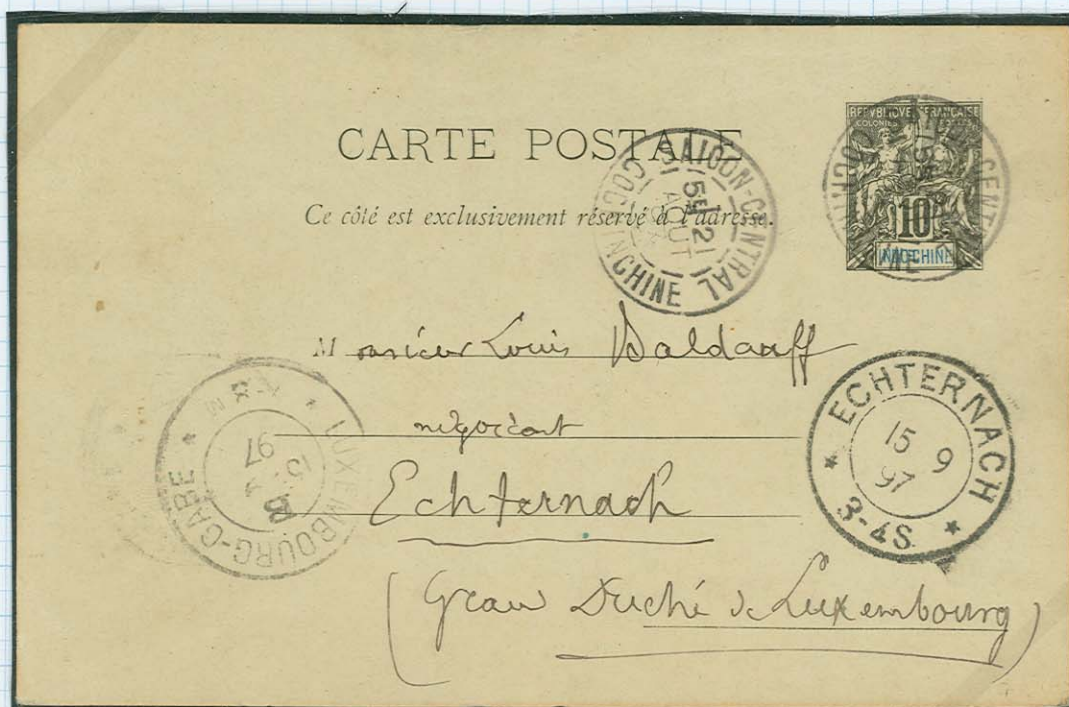 CARTE POSTALE
Ce côté est exclusivement réservé à l'adresse.
REPUBLIQUE FRANCAISE
COLONIES
10
INDO-CHINE
SAIGON-CENTRAL
5E 21
AOUT
COCHINCHINE
Monsieur Louis Baldauff
négociant
Echternach
(Grand Duché de Luxembourg)
LUXEMBOURG-GARE
97
ECHTERNACH
15 9
97
3-4S